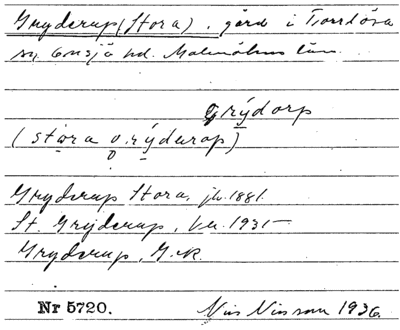 Gryderup (Stora), gård i Tområra
sn, Onsjö hd. Malmöhus län.
grýdorp
(stora o. rýdarop)
Gryderup Stora, jb. 1881.
St. Gryderup, ka. 1931
Gryderup, G.K.
Nr 5720.
Nils Nilsson 1936.